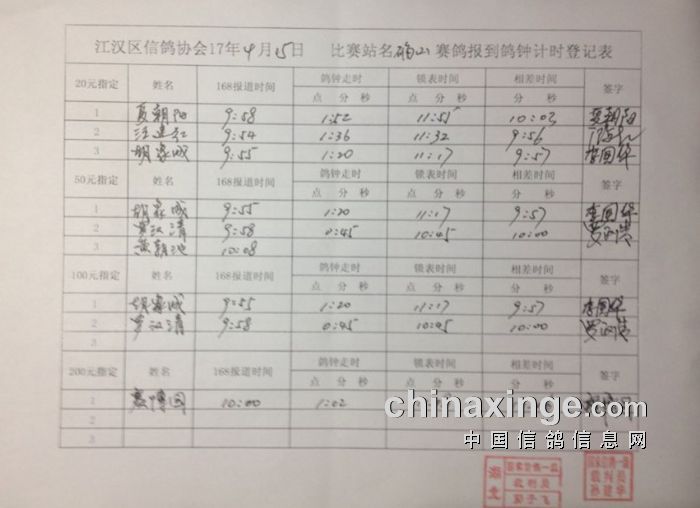 江汉区信鸽协会17年4月15日 比赛站名确山赛鸽报到鸽钟计时登记表
20元指定 姓名 168报道时间 鸽钟走时 锁表时间 相差时间 签字
点 分 秒 点 分 秒 点 分 秒
1 夏朝阳 9:58 1:52 11:55 10:03 夏朝阳
2 汪建红 9:54 1:36 11:32 9:56
3 胡家成 9:55 1:20 11:17 9:57 李国华
50元指定 姓名 168报道时间 鸽钟走时 锁表时间 相差时间 签字
点 分 秒 点 分 秒 点 分 秒
1 胡家成 9:55 1:20 11:17 9:57 李国华
2 罗汉清 9:58 0:45 10:45 10:00 罗汉清
3 黄朝池 10:08
100元指定 姓名 168报道时间 鸽钟走时 锁表时间 相差时间 签字
点 分 秒 点 分 秒 点 分 秒
1 胡家成 9:55 1:20 11:17 9:57 李国华
2 罗汉清 9:58 0:45 10:45 10:00 罗汉清
3
200元指定 姓名 168报道时间 鸽钟走时 锁表时间 相差时间 签字
点 分 秒 点 分 秒 点 分 秒
1 10:00 1:02
2
3
chinaxinge.com
中国信鸽信息网
湖北 国家信鸽一级裁判员
国家信鸽一级裁判员孙建华